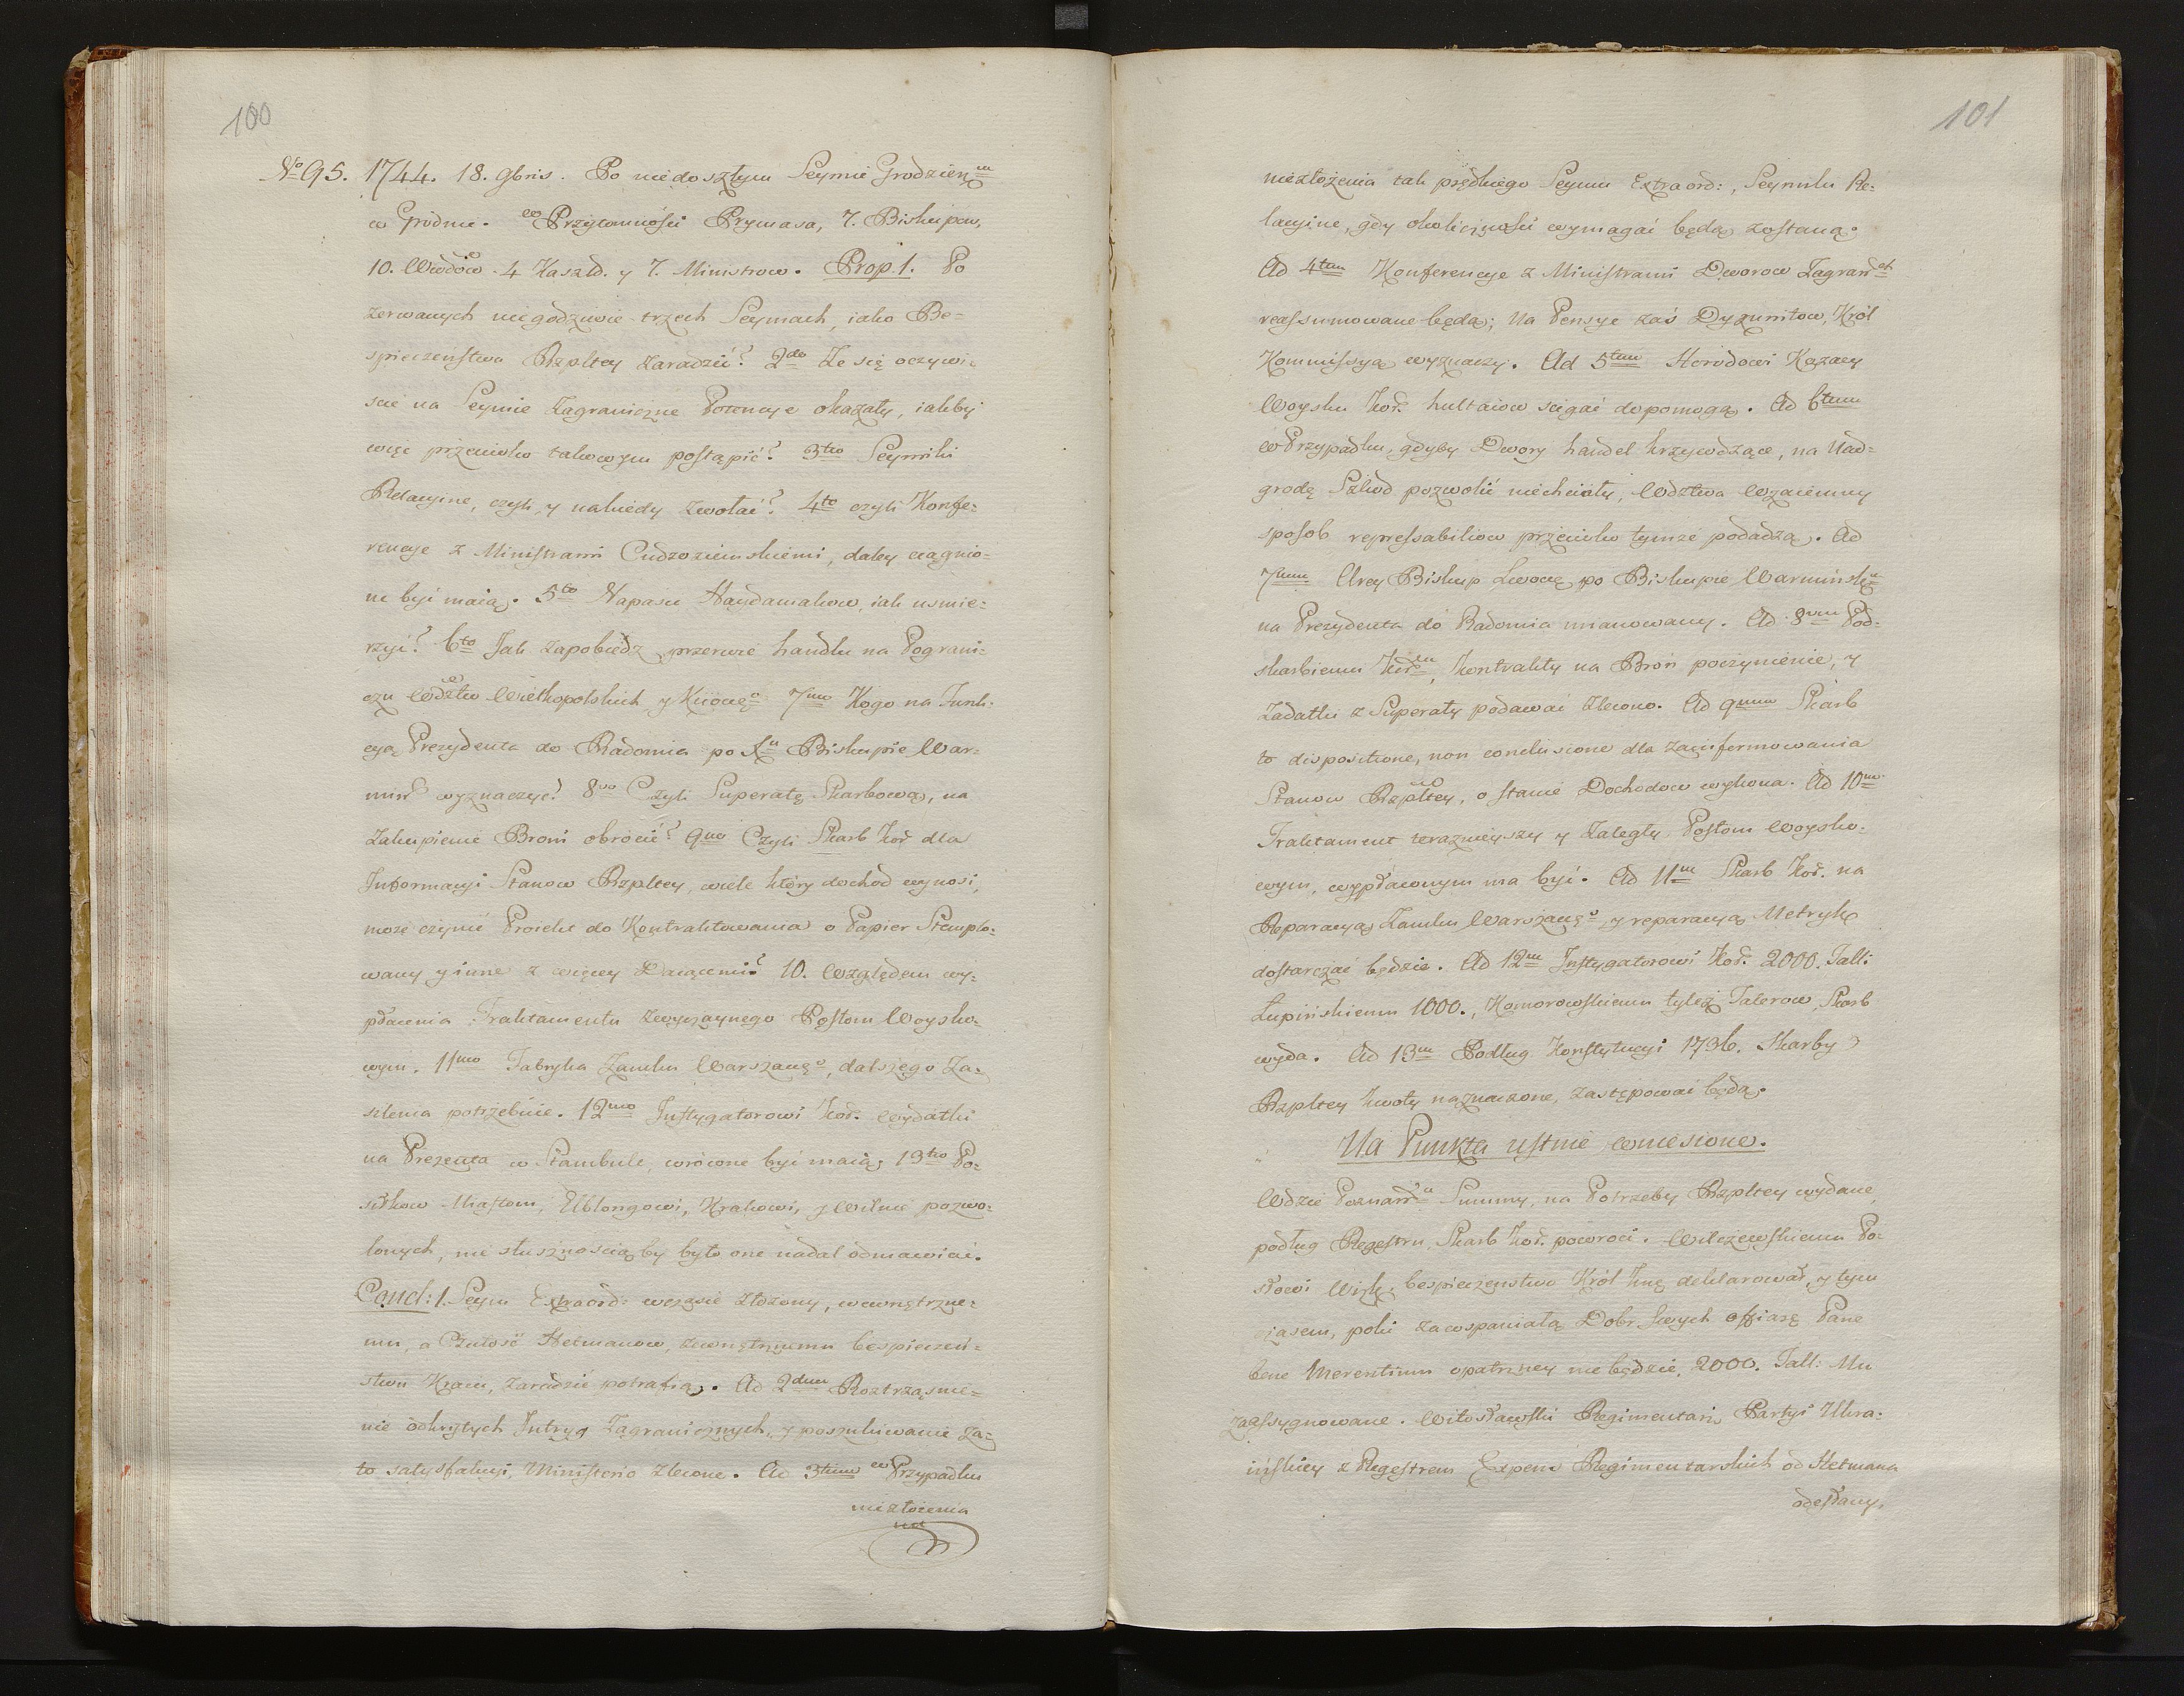 100
No 95. 1744. 18. 9bris. Po niedoszłym Seymie Grodzien m
w Grodnie. w Przytomności Prymasa, 7. Biskupow,
10. Wwdow 4 Kaszld. y 7. Ministrow. Prop. 1. Po
zerwanych niegodziwie trzech Seymach, iako Be=
spieczeństwu Rzpltey zaradzić? 2do Ze się oczywi=
scie na Seymie Zagraniczne Potencye okazały, iakby
więc przeciwko takowym postąpić? 3tio Seymiki
Relacyine, czyli, y nakiedy zwołać? 4to czyli Konfe=
rencye z Ministrami Cudzoziemskiemi, daley ciągnio=
ne być maią. 5to Napasci Haydamakow, iak usmie=
rzyć? 6to Jak zapobiedz przerwie handlu na Pograni=
czu Wdztw Wielkopolskich, y Kiiowgo 7mo Kogo na Funk=
cyą Prezydenta do Radomia po Xu Biskupie War=
min wyznaczyć? 8vo Czyli Superatę Skarbową, na
Zakupienie Broni obrocić? 9no Czyli Skarb Kor dla
Informacyi Stanow Rzpltey, wiele który dochod wynosi,
może czynić Proiekt do Kontraktowania o Papier Stemplo=
wany y inne z więcey Daiącemi? 10. Względem wy=
płacenia Traktamentu zwyczaynego Posłom Woysko=
wym. 11mo Fabryka Zamku Warszawgo, dalszego Za=
silenia potrzebuie. 12mo Instygatorowi Kor. wydatki
na Prezenta w Stambule, wrócone być maią, 13tio Po=
siłkow Miastom, Elblongowi, Krakowi, y Wilnie pozwo=
lonych, nie słusznością by było one nadal odmawiać.
Concl: 1. Seym Extraord: wczasie złożony, wewnętrzne=
mu, a Czułość Hetmanow, zewnętrznemu bespieczeń=
stwu Kraiu, zaradzić potrafią. Ad 2dum Roztrząsnie=
nie odkrytych Intryg Zagranicznych, y poszukiwanie za=
to satysfakcyi Ministerio zlecone. Ad 3tium w Przypadku
niezłożenia
101
niezłożenia tak prędkiego Seymu Extraord:, Seymiki Re=
lacyine, gdy okoliczności wymagać będą, zostaną.
Ad 4tum Konferencye z Ministrami Dworow Zagran ch
reassumowane będą; Na Pensye zaś Dyzunitow, Król
Kommissyą wyznaczy. Ad 5tum Horodowi Kozacy
Woysku Kor. hultaiow scigać dopomogą. Ad 6tum
w Przypadku, gdyby Dwory handel krzywdzące, na Nad=
grodę Szkod pozwolić niechciały, Wdztwa Wzaiemny
sposob repressaliow przeciwko tymże podadzą. Ad
7mum Urey Biskup Lwowg po Biskupie Warmińskm
na Prezydenta do Radomia mianowany. Ad 8vum Pod=
skarbiemu Kormu, Kontrakty na Broń poczynienie, y
Zadatku z Superaty podawać zlecono. Ad 9num Skarb
to dispositione, non conclusione dla zainformowania
Stanow Rzpltey, o stanie Dochodow wykona. Ad 10m
Traktament terazniejszy y Zaległy Posłom Woysko=
wym, wypłaconym ma być. Ad 11m Skarb Kor. na
Reparacyą Zamku Warszawgo, y reparacyą Metryk
dostarczać będzie. Ad 12m Instygatorowi Kor. 2000. Tall:
Łupińskiemu 1000., Komorowskiemu tyleż Talerow, Skarb
wyda. Ad 13m Podług Konstytucyi 1736. Skarby
Rzpltey kwoty naznaczone, zastępować będą.
Na Punkta ustnie wniesione.
Wdzie Poznan u Summy, na Potrzeby Rzpltey wydane,
podług Regestru, Skarb Kor. powróci. Wilczewskiemu Po=
słowi Wizk, bespieczenstwo Król Jmę deklarował, y tym
czasem, poki zawspaniałą Dobr Swych offiarę Pane
bene Merentium opatrzney nie będzie, 2000. Tall: Mu
zaassygnowane. Witosławski Regimentarz Partyi Ukra=
ińskiey z Regestrem Expens Regimentarskich od Hetmana
odesłany,